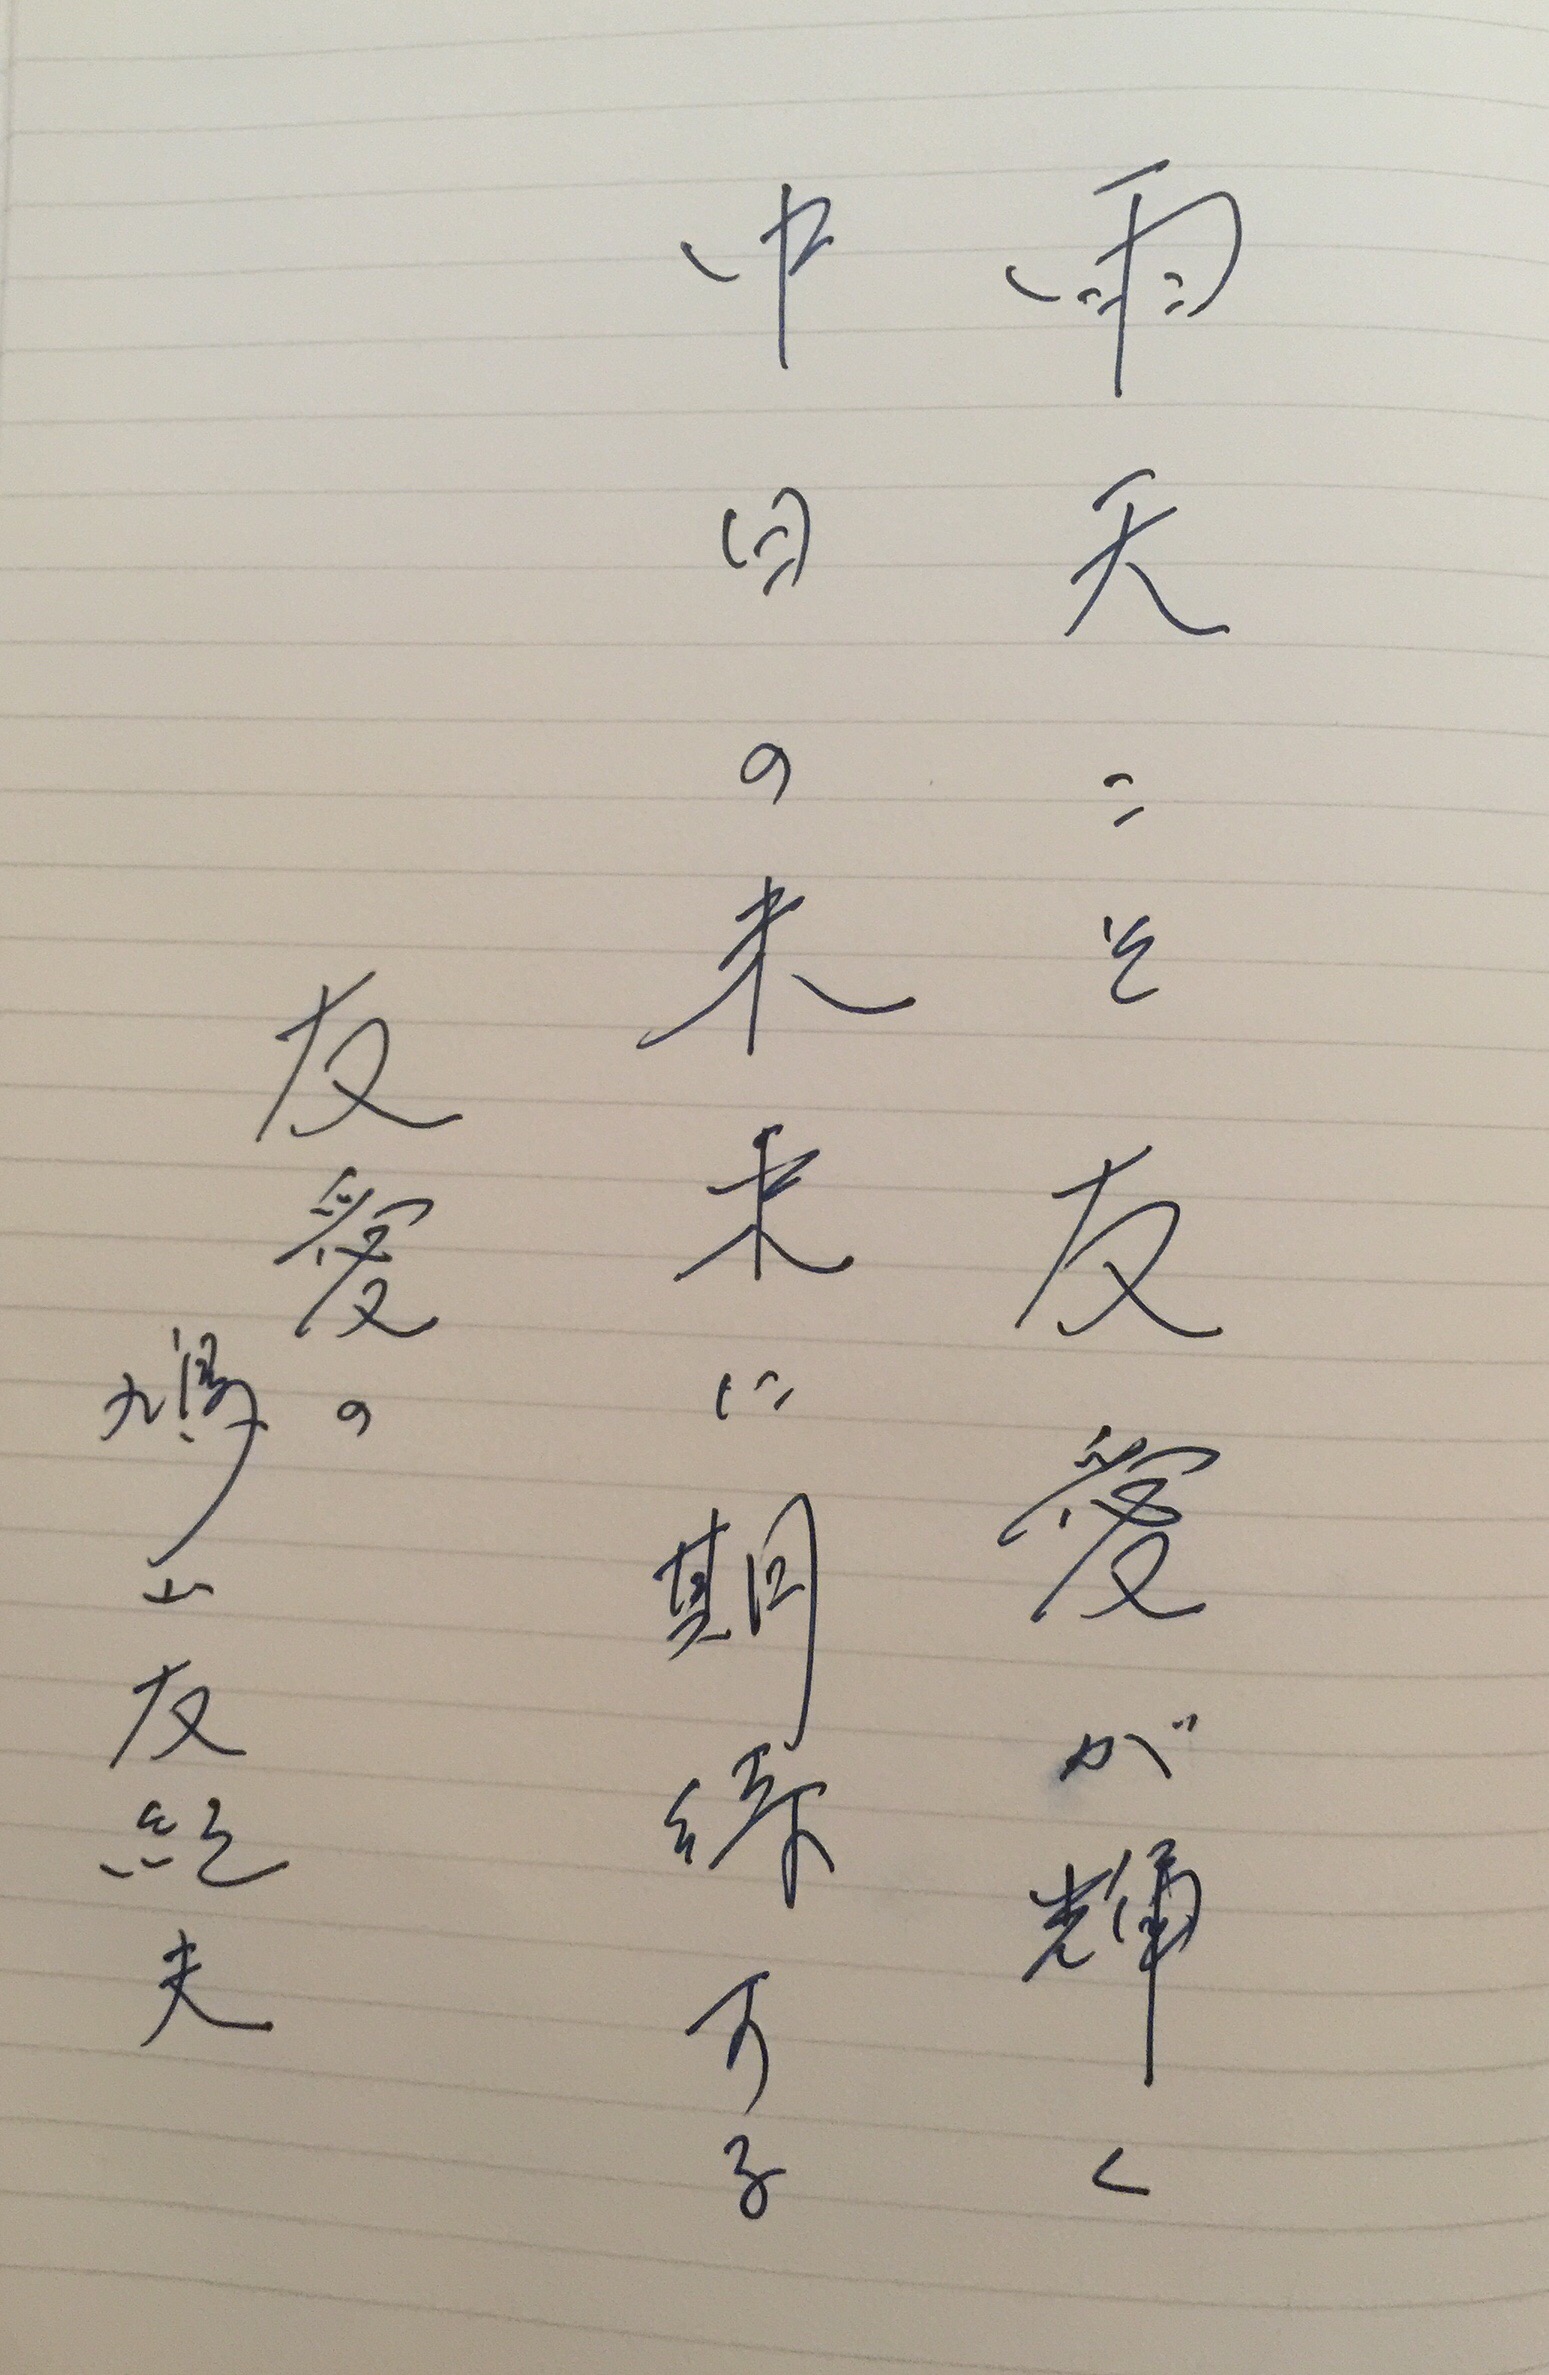 雨天こそ友愛が輝く
中日の未来に期する
友愛の
鳩山友紀夫